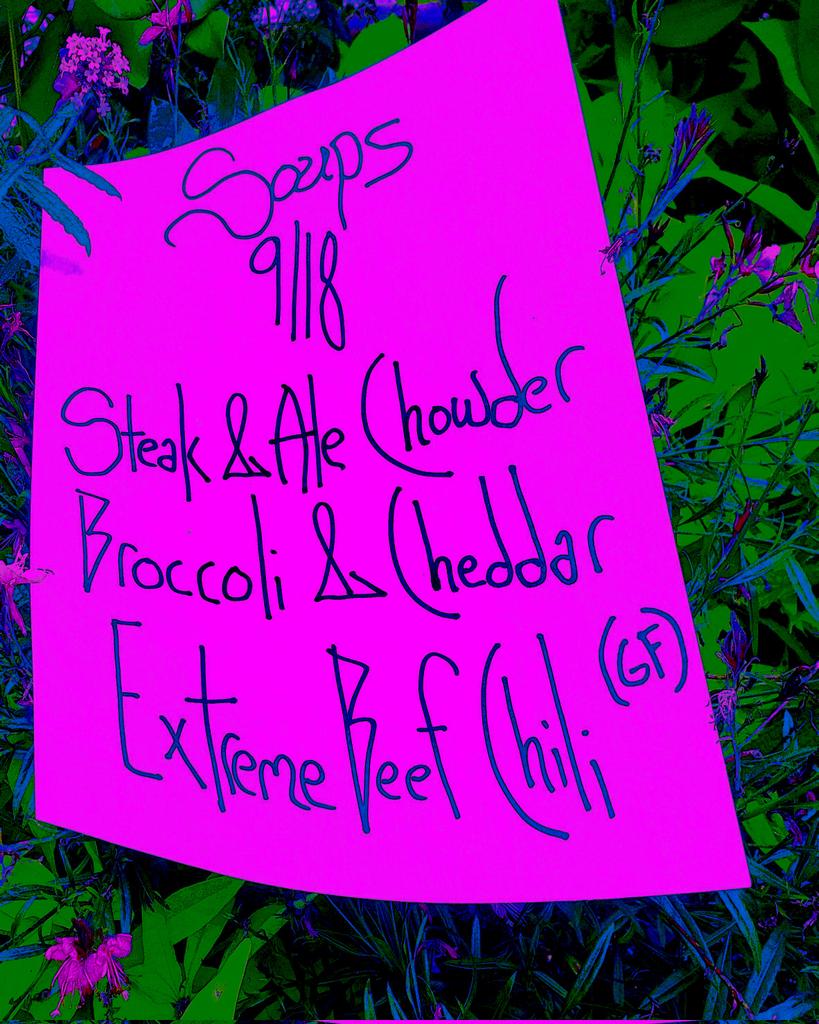 Soups
9/18
Steak & Ale Chowder
Broccoli & Cheddar
Extreme Beef Chili (GF)